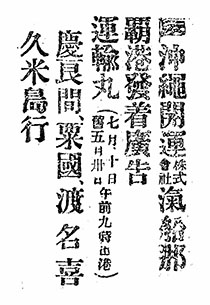 沖繩開運株式會社滊船那
覇港發着廣告
運輸丸（七月十日舊五月卅日午前九時出港）
慶良間、粟國、渡名喜
久米島行